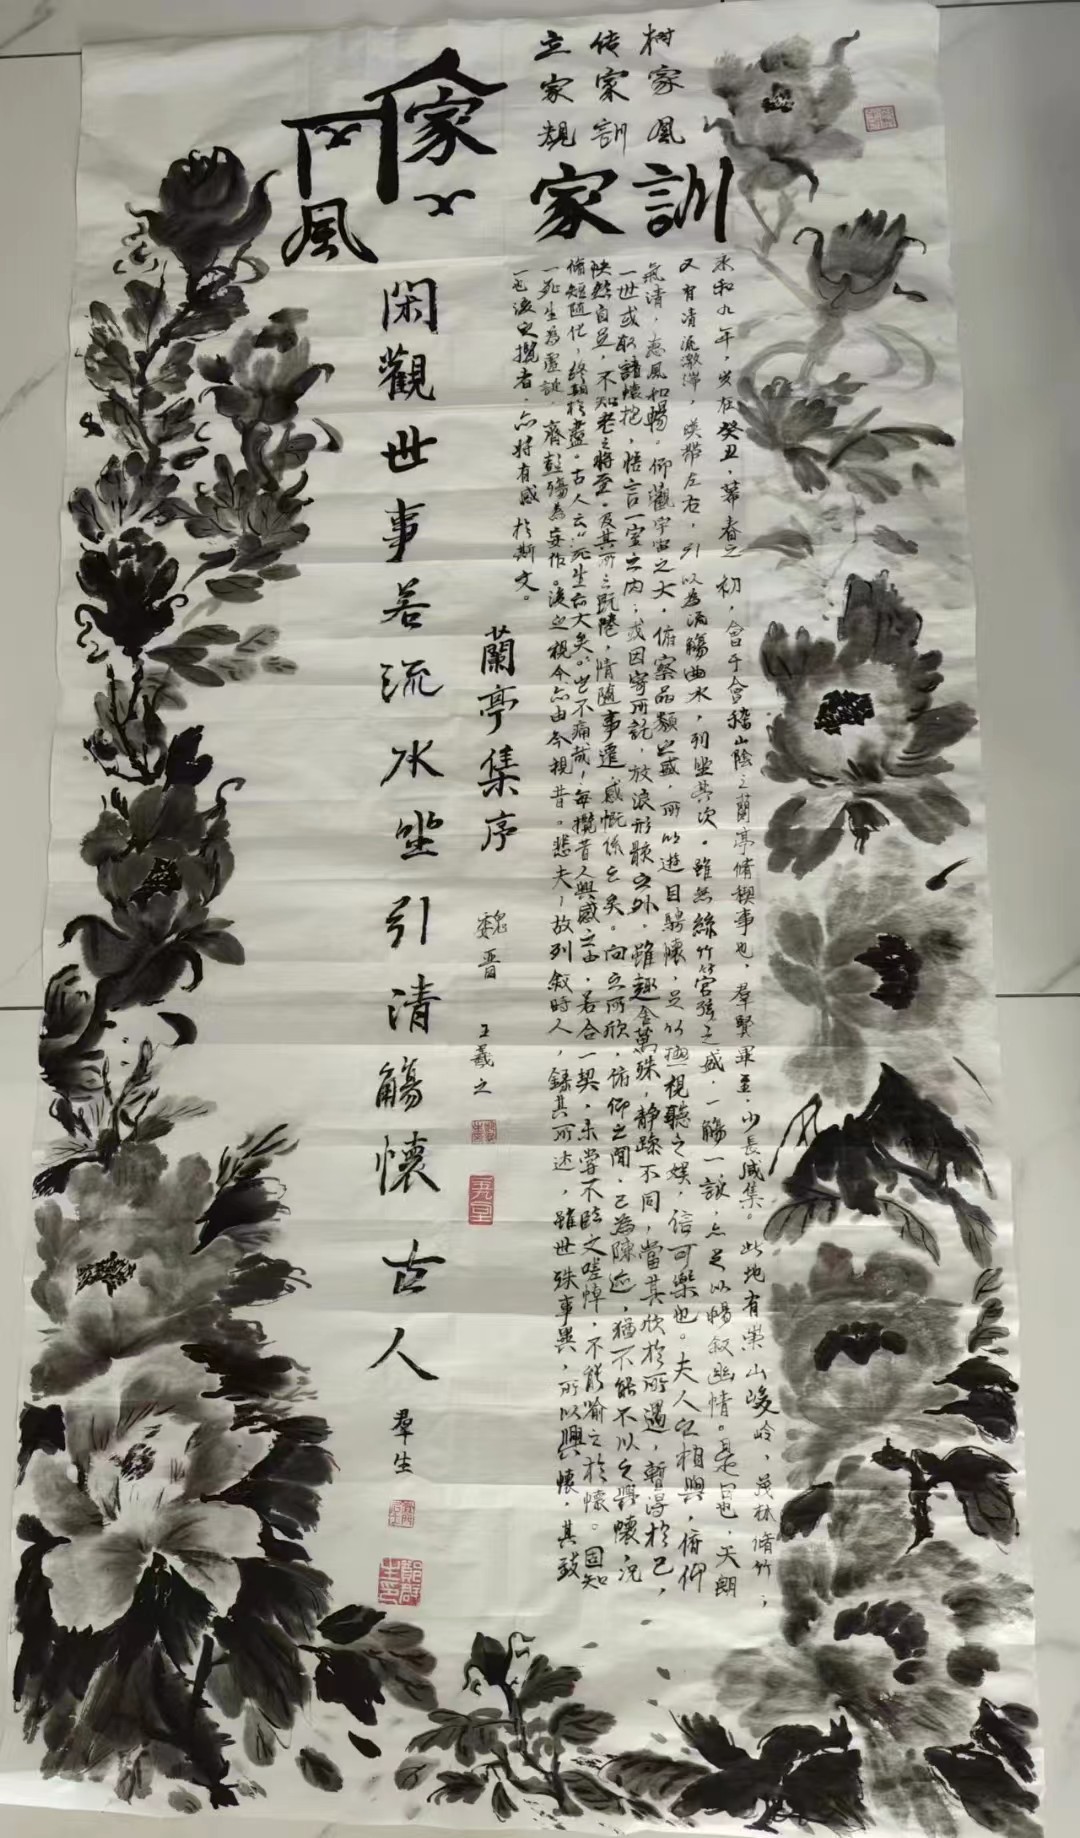 树家风
传家训
立家规
家训
家
家風
永和九年，岁在癸丑，暮春之初，會于會稽山陰之蘭亭脩稧事也，羣賢畢至，少長咸集。此地有崇山峻岭，茂林脩竹；
又有清流激湍，暎帶左右，引以為流觴曲水，列坐其次。雖無絲竹管弦之盛，一觴一詠，亦足以暢叙幽情。是日也，天朗
氣清，惠風和暢。仰觀宇宙之大，俯察品類之盛，所以遊目騁懷，足以極視聽之娱，信可樂也。夫人之相與，俯仰
一世或取諸懷抱，悟言一室之内；或因寄所託，放浪形骸之外。雖趣舍萬殊，静躁不同，當其欣於所遇，暫得於己，
怏然自足，不知老之將至。及其所之既惓，情隨事遷，感慨係之矣。向之所欣，俯仰之間，已為陳迹，猶不能不以之興懷，况
脩短隨化，終期於盡。古人云：“死生亦大矣。”豈不痛哉！每攬昔人興感之由，若合一契，未嘗不臨文嗟悼，不能喻之於懷。固知
一死生為虛誕，齊彭殤為妄作。後之視今亦由今視昔。悲夫！故列叙時人，録其所述，雖世殊事異，所以興懷，其致
一也。後之攬者，亦將有感於斯文。
蘭亭集序 魏晋 王羲之
閑觀世事若流水坐引清觴懷古人 羣生